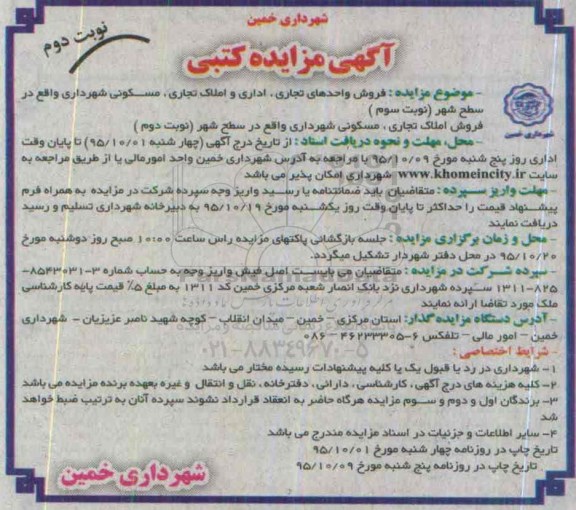 شهرداری خمین
نوبت دوم
آگهی مزایده کتبی
- موضوع مزایده : فروش واحدهای تجاری ، اداری و املاک تجاری ، مسکونی شهرداری واقع در
سطح شهر (نوبت سوم )
فروش املاک تجاری ، مسکونی شهرداری واقع در سطح شهر (نوبت دوم )
شهرداری خمین
- محل، مهلت و نحوه دریافت اسناد : از تاریخ درج آگهی (چهار شنبه ۹۵/۱۰/۰۱) تا پایان وقت
اداری روز پنج شنبه مورخ ۹۵/۱۰/۰۹ با مراجعه به آدرس شهرداری خمین واحد امورمالی یا از طریق مراجعه به
سایت www.khomeincity.ir شهرداری امکان پذیر می باشد
- مهلت واریز سپرده : متقاضیان باید ضمانتنامه یا رسید واریز وجه سپرده شرکت در مزایده به همراه فرم
پیشنهاد قیمت را حداکثر تا پایان وقت روز یکشنبه مورخ ۹۵/۱۰/۱۹ به دبیرخانه شهرداری تسلیم و رسید
دریافت نمایند
- محل و زمان برگزاری مزایده : جلسه بازگشائی پاکتهای مزایده راس ساعت ۱۰:۰۰ صبح روز دوشنبه مورخ
۹۵/۱۰/۲۰ در محل دفتر شهردار تشکیل میگردد.
- سپرده شرکت در مزایده : متقاضیان می بایست اصل فیش واریز وجه به حساب شماره ۳-۸۵۴۳۰۳۱-
۸۲۵-۱۳۱۱ سپرده شهرداری نزد بانک انصار شعبه مرکزی خمین کد ۱۳۱۱ به مبلغ ۵٪ قیمت پایه کارشناسی
ملک مورد تقاضا ارائه نمایند
- آدرس دستگاه مزایده گذار: استان مرکزی - خمین - میدان انقلاب - کوچه شهید ناصر عزیزیان - شهرداری
خمین - امور مالی - تلفکس ۶-۴۶۲۳۳۳۰۵-۰۸۶
۰۲۱-۸۸۳۴۹۶۷۰-۵
- شرایط اختصاصی :
۱- شهرداری در رد یا قبول یک یا کلیه پیشنهادات رسیده مختار می باشد
۲- کلیه هزینه های درج آگهی ، کارشناسی ، دارائی ، دفترخانه ، نقل و انتقال و غیره بعهده برنده مزایده می باشد
۳- برندگان اول و دوم و سوم مزایده هرگاه حاضر به انعقاد قرارداد نشوند سپرده آنان به ترتیب ضبط خواهد
شد
۴- سایر اطلاعات و جزئیات در اسناد مزایده مندرج می باشد
تاریخ چاپ در روزنامه چهار شنبه مورخ ۹۵/۱۰/۰۱
تاریخ چاپ در روزنامه پنج شنبه مورخ ۹۵/۱۰/۰۹
شهرداری خمین